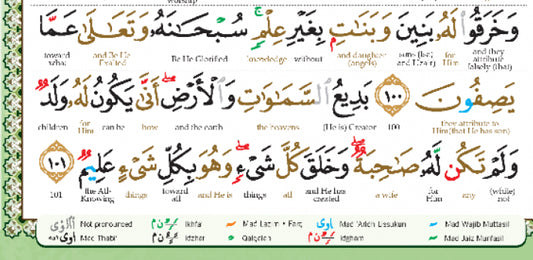 وَخَرَقُوا لَهُ بَنِينَ وَبَنَاتٍ بِغَيْرِ عِلْمٍ سُبْحَانَهُ وَتَعَالَى عَمَّا
and they attribute falsely (that) for Him sons (Isa) and Uzair) and daughter (angels) without 'knowledge He Glorified and Be He Exalted toward what
يَصِفُونَ ١٠٠ بَدِيعُ السَّمَاوَاتِ وَالْأَرْضِ أَنَّى يَكُونُ لَهُ وَلَدٌ
they attribute to Him(that He has son) 100 (He is) Creator the heavens and the earth how can be for Him children
وَلَمْ تَكُن لَّهُ صَاحِبَةٌ وَخَلَقَ كُلَّ شَيْءٍ وَهُوَ بِكُلِّ شَيْءٍ عَلِيمٌ ١٠١
(while) not any for Him a wife and He has created all things and He is toward all things the All-Knowing 101
Not pronounced Ikhfa' Mad Lazim - Farq Mad 'Aridh Lissukun Mad Wajib Muttasil
Mad Thabi'i Idzhar Qalqalah Idgham Mad Jaiz Munfasil